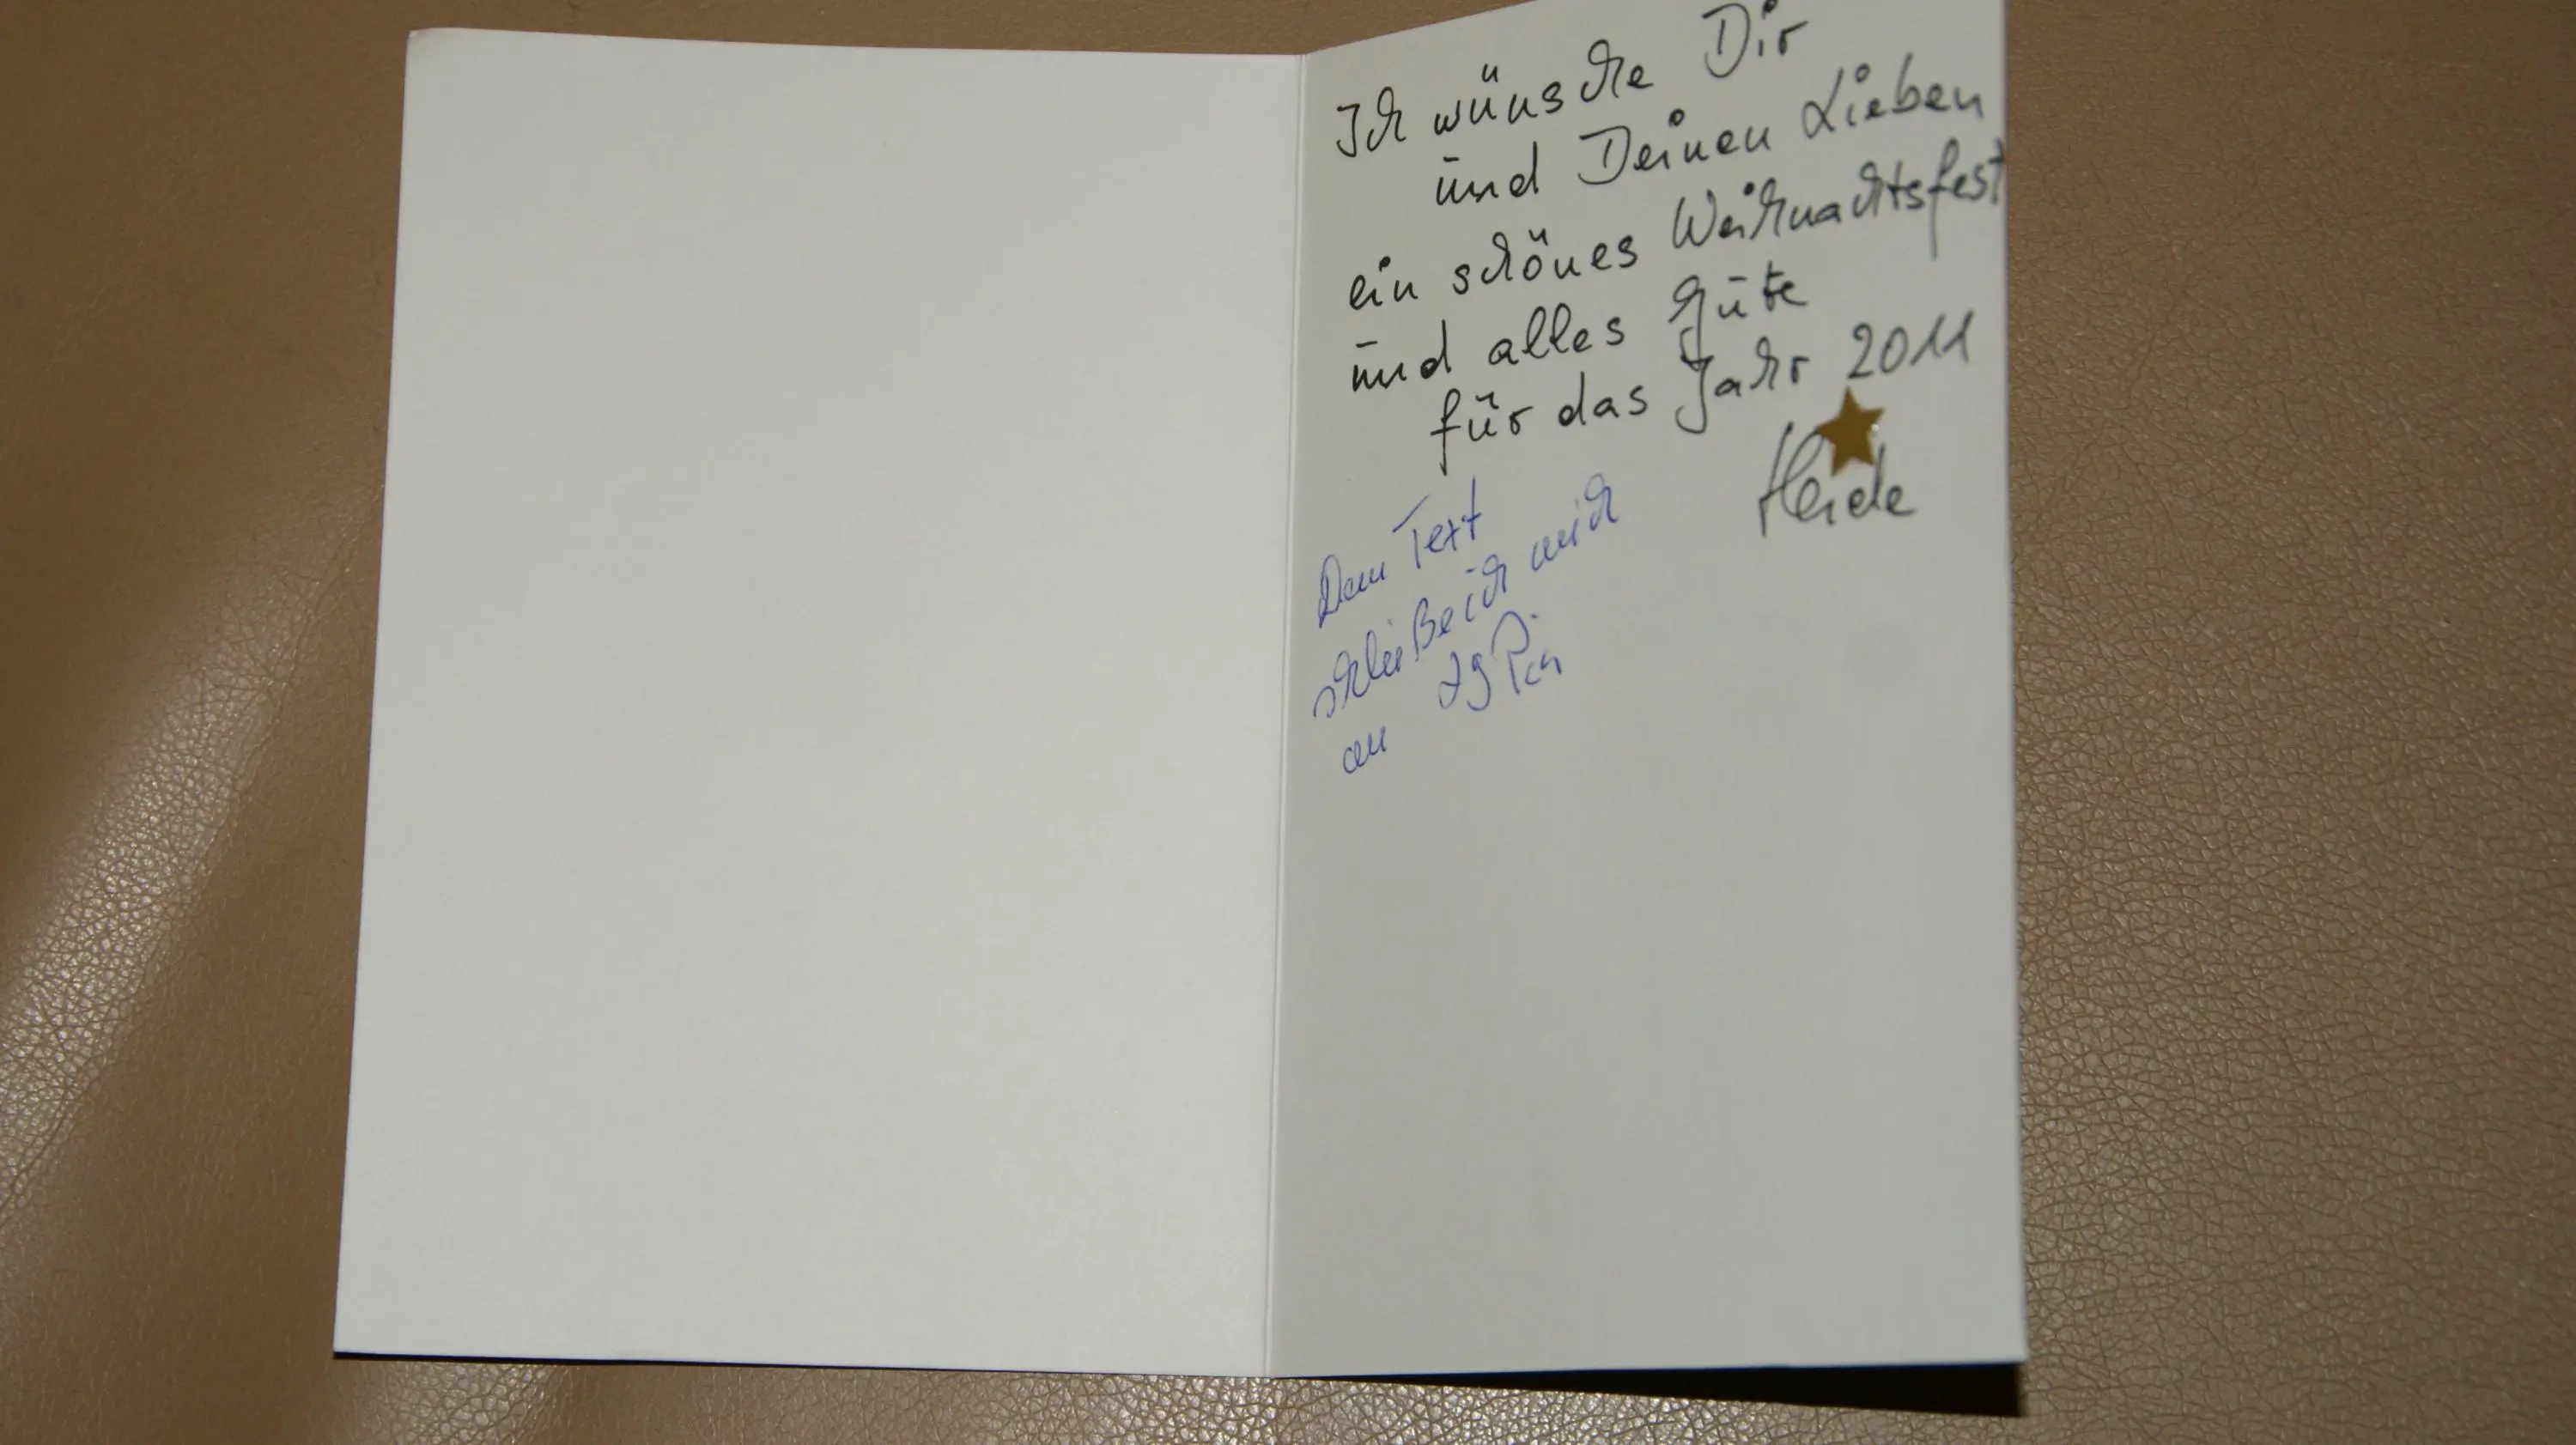 Ich wünsche Dir
und Deinen Lieben
ein schönes Weihnachtsfest
und alles Gute
für das Jahr 2011
Heide
Dem Text
schließe ich mich
an